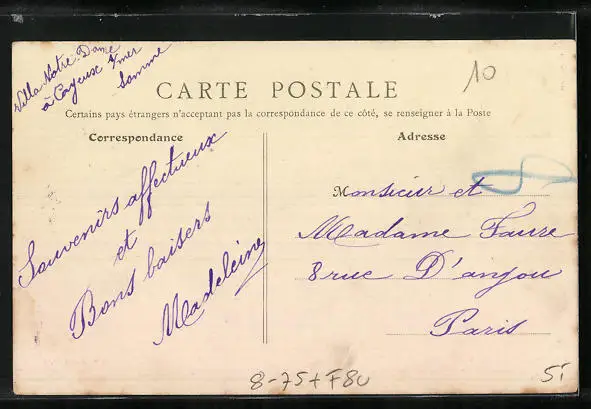 Villa Notre-Dame
à Cayeux s/mer
Somme
10
CARTE POSTALE
Certains pays étrangers n'acceptant pas la correspondance de ce côté, se renseigner à la Poste
Correspondance
Adresse
Souvenirs affectueux
et
Bons baisers
Madeleine
Monsieur et
Madame Faure
8 rue D'anjou
Paris
8-75+F80